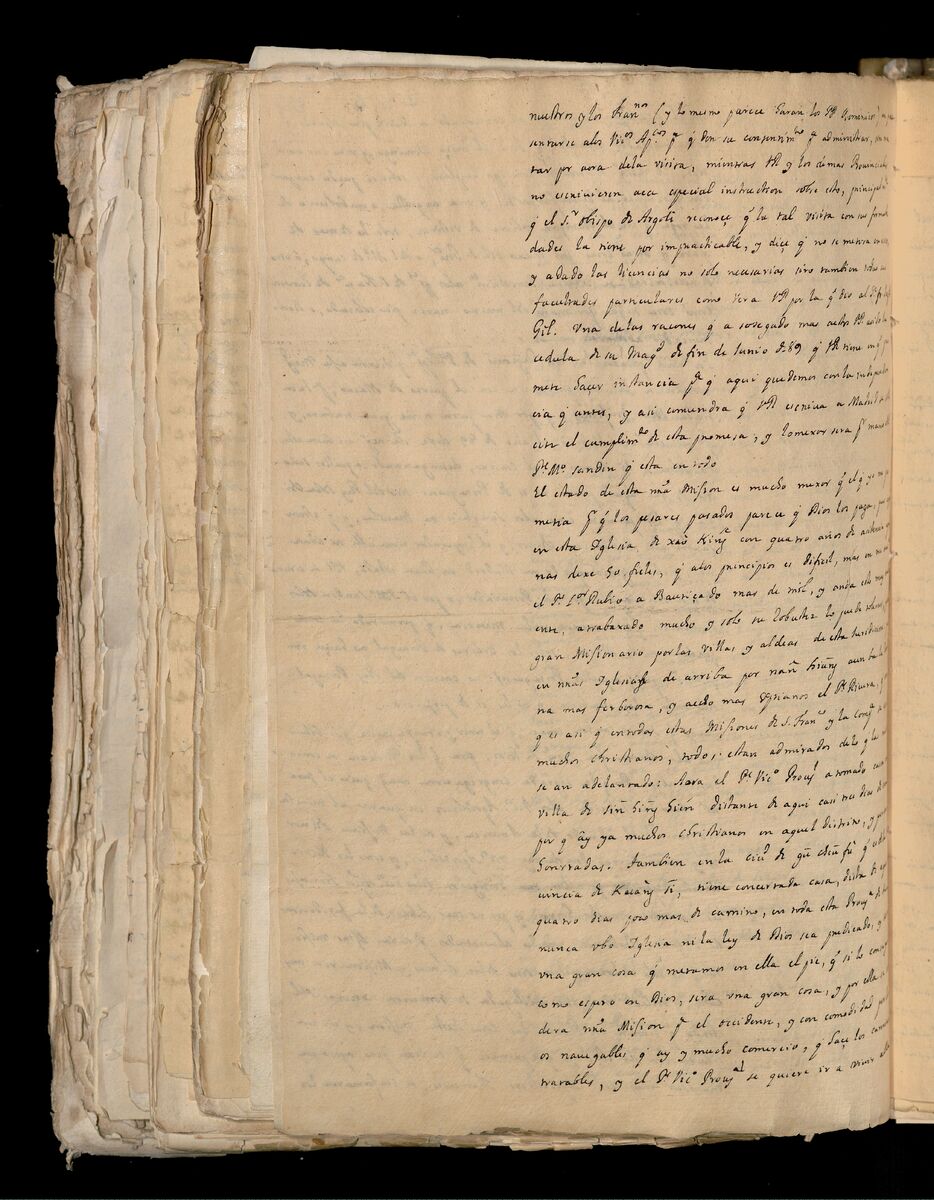 nuestros y los Fran.nos (y lo mesmo parece haran los PP Dominicos)
sentarse a los Vic.os Ap.cos p.a q̃ con su consentim.to p.a administrar,
tar por aora de la visita, mientras VR y los demas Provinciales
no escrivieren aca especial instruction sobre esto, principalm.te
q̃ el S.r obispo de Argoli reconoce q̃ la tal visita con sus forma
dades la tiene por impracticable, y dice q̃ no se metera en
y a dado las licencias no solo necesarias sino tambien todas sus
facultades particulares como vera VR por la q̃ dio al P.e fr
Gil. Una de las raçones q̃ a sosegado mas a estos PP a sido la
cedula de su Mag.d de fin de Junio de 89 q̃ VR tiene en q̃ pro
mete haçer instancia p.a q̃ aqui quedemos con la independen
cia q̃ antes, y asi convendra q̃ VR escriva a Madrid
cite el cumplim.to de esta promesa, y lo mexor sera p.r mano del
P.e M.o Sandin q̃ esta en todo
El estado de esta n̄r̄a Mission es mucho mexor q̃ el q̃ yo me pro
metia p.r q̃ los pesares pasados parece q̃ Dios los paga,
en esta Iglesia de xaô Kiñg con quatro años de
nas dexe 50 fieles, q̃ a los principios es dificil, mas en
el P.e L.or Rubio a Bautiçado mas de mil, y anda este
ente, a trabaxado mucho y solo su robustez lo puede tolerar,
gran Missionario por las villas y aldeas de esta Jurisdicion
en n̄r̄as Iglesias de arriba por nañ hiuñg
na mas ferborosa, y a echo mas Xptianos el P.e Rivera,
q̃ es asi q̃ en todas estas Missiones de S. Fran.co y la Comp.a
muchos christianos, todos estan admirados de lo q̃
se an adelantado: Aora el P.e Vic.o Prov.l a tomado casa
villa de siñ hiñg hién distante de aqui casi tres dias
por q̃ ay ya muchos christianos en aquel distrito, y
honrradas. Tambien en la ciu.d de q̃
vincia de Kiañg Si, tiene concertada casa, dista de
quatro dias poco mas de camino, en toda esta Prov.a
nunca ubo Iglesia ni la ley de Dios sea predicado, y
una gran cosa q̃ metamos en ella el pie, q̃ si lo
como espero en Dios, sera una gran cosa, y por ella
dera n̄r̄a Mission p.a el occidente, y con comodidad
os navegables q̃ ay y mucho comercio, q̃ haçe los caminos
tratables, y el P.e Vic.o Prov.al se quiere ir a vivir